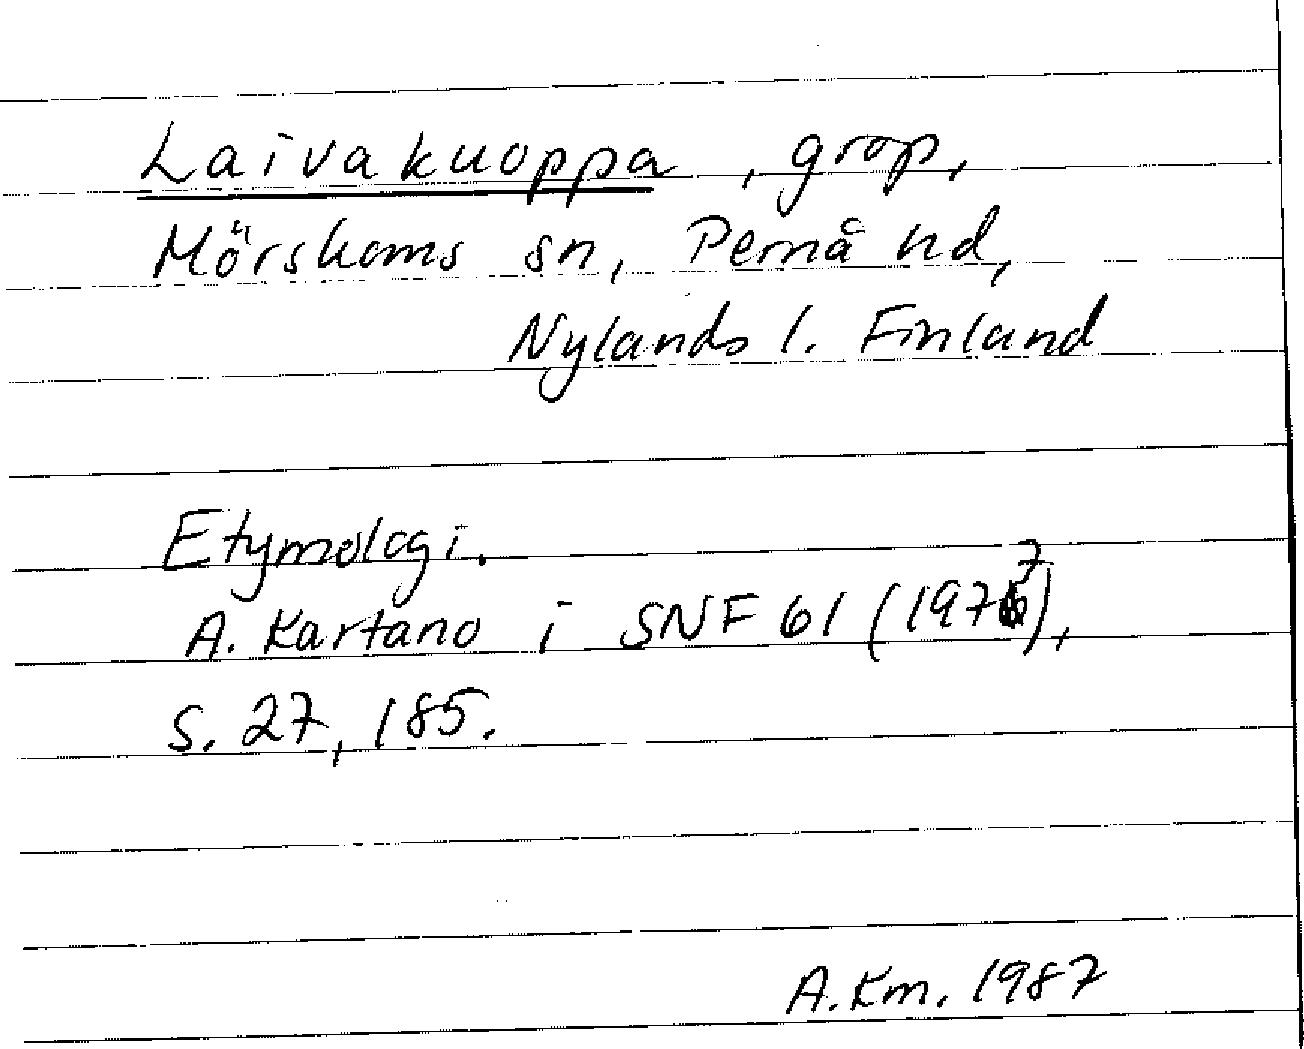 Laivakuoppa, grop,
Mörskoms sn, Pernå hd,
Nylands l. Finland
Etymologi.
A. Kartano i SNF 61 (1977),
S. 27, 185.
A.Km. 1987